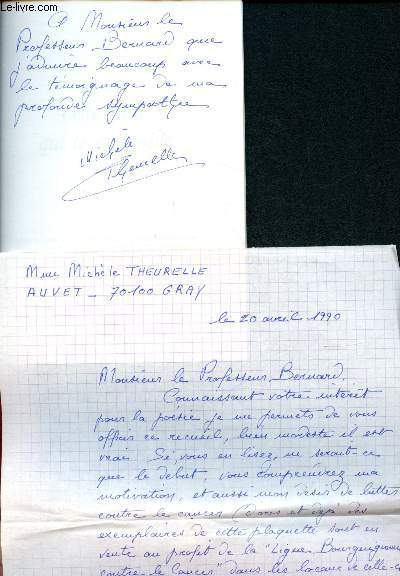 Le-livre.com
A Monsieur le
Professeur Bernard que
j'admire beaucoup avec
le témoignage de ma
profonde sympathie
Michèle
Theurelle
Mme Michèle THEURELLE
AUVET - 70100 GRAY
le 20 avril 1990
Monsieur le Professeur Bernard,
Connaissant votre intérêt
pour la poésie je me permets de vous
offrir ce recueil, bien modeste il est
vrai. Si vous en lisez, ne serait-ce
que le début, vous comprendrez ma
motivation, et aussi mon désir de lutter
contre le cancer des
exemplaires de cette plaquette sont en
vente au profit de la "Ligue Bourguignonne
contre le Cancer" dans les locaux de celle-ci